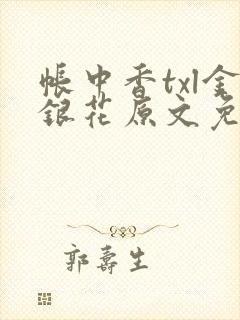 帳中香txl金
銀花原文免
郭壽生